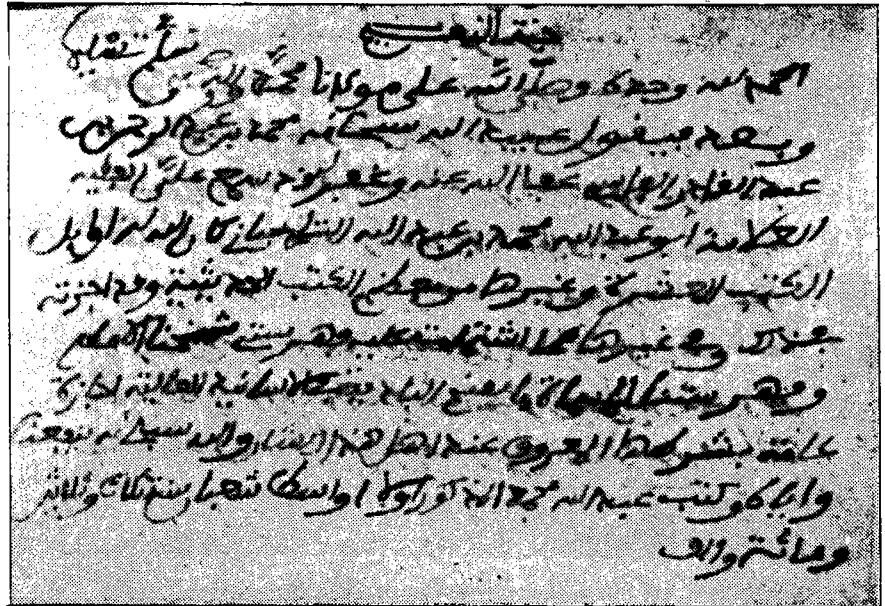 الحمد لله وحده وصلى الله على مولانا محمد وآله
وبعد فيقول عبيد الله سبحانه محمد بن عبد الرحمن بن
عبد القادر الفاسي عفا الله عنه وغفر له قد سمع علي الفقيه
العلامة أبو عبد الله محمد بن عبد الله كان الله له أوايل
الكتب العشرة وغيرها من معظم الكتب الحديثية وقد أجزته
بذلك وبغيرها مما اشتملت عليه فهرست شيخنا الإمام
وفهرستنا المسماة بالمنح البادية في الأسانيد العالية إجازة
عامة بشرطها المعروف عند أهل هذا الشأن والله سبحانه ينفعنا
وإياه وكتب عبيد الله محمد المذكور أواسط شعبان سنة ثلاث وثلاثين
ومائة وألف